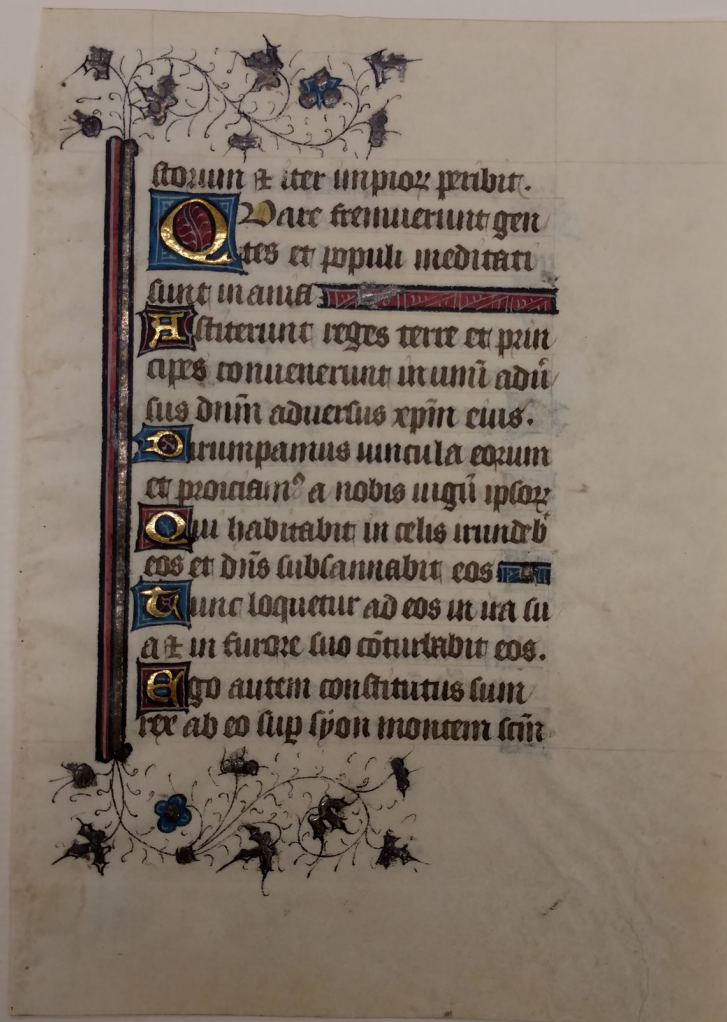 storum et iter impiorꝝ peribit.
Quare fremuerunt gen
tes et populi meditati
sunt inania
Astiterunt reges terre et prin
cipes conuenerunt in unū adũ
sus dn̄m aduersus xp̄m eius.
Dirumpamus uincula eorum
et proiciamꝰ a nobis iugū ipsorꝝ
Qui habitabit in celis irrideb̄
eos et dn̄s subsannabit eos
Tunc loquetur ad eos in ira su
a et in furore suo cōturbabit eos.
Ego autem constitutus sum
rex ab eo suꝑ syon montem scm̄